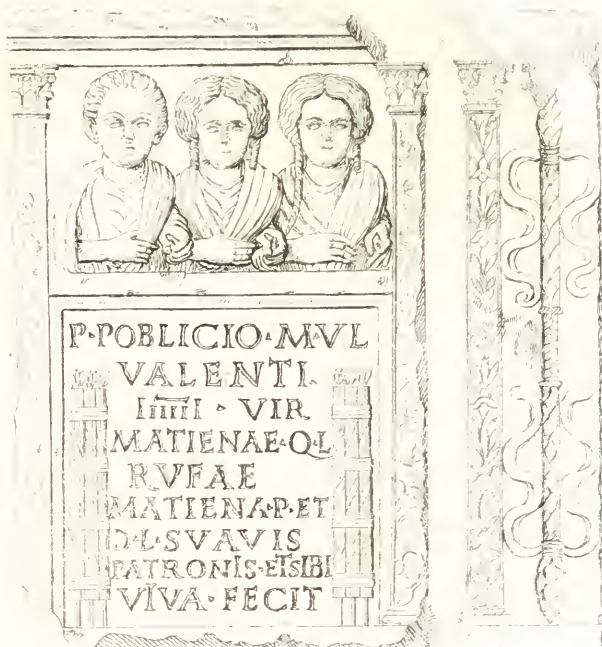 P·POBLICIO·M·VL
VALENTI·
IIIIII · VIR
MATIENAE·Q·L
RVFAE
MATIENA·P·ET
Ɔ·L·SVAVIS
PATRONIS·ETSIBI
VIVA·FECIT